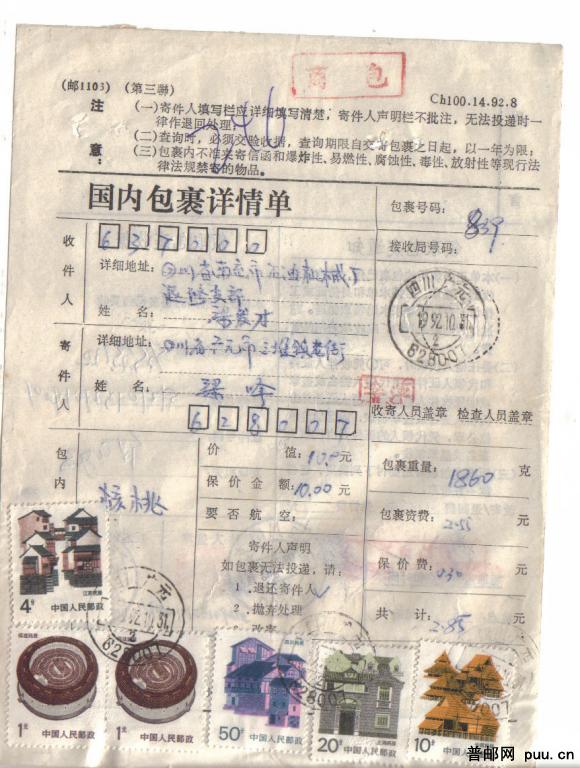 商包
(邮1103)（第三聯） Ch100.14.92.8
注意：
(一)寄件人填写栏应详细填写清楚，寄件人声明栏不批注，无法投递时一
律作退回处理；
(二)查询时，必须交验收据，查询期限自交寄包裹之日起，以一年为限；
(三)包裹内不准夹寄信函和爆炸性、易燃性、腐蚀性、毒性、放射性等现行法
律法规禁寄的物品。
国内包裹详情单
包裹号码：839
接收局号码：
收件人
637000
详细地址：四川省南充市石油机械厂
姓名：
四川广元
1992.10.31
2
628001
寄件人
详细地址：四川省广元市三堆镇老街
姓名：梁峰
628007
收寄人员盖章 检查人员盖章
包内
核桃
价值：10.0元
保价金额：10.00元
要否航空：
寄件人声明
如包裹无法投递，请：
1.退还寄件人✓
2.抛弃处理
3.改寄
包裹重量：1860克
包裹资费：2.55元
保价费：0.30元
共计：2.85元
4分
江苏民居
中国人民邮政
福建民居
1分
中国人民邮政
福建民居
1分
中国人民邮政
四川民居
50分
中国人民邮政
上海民居
20分
中国人民邮政
10分
中国人民邮政
普邮网 puu.cn